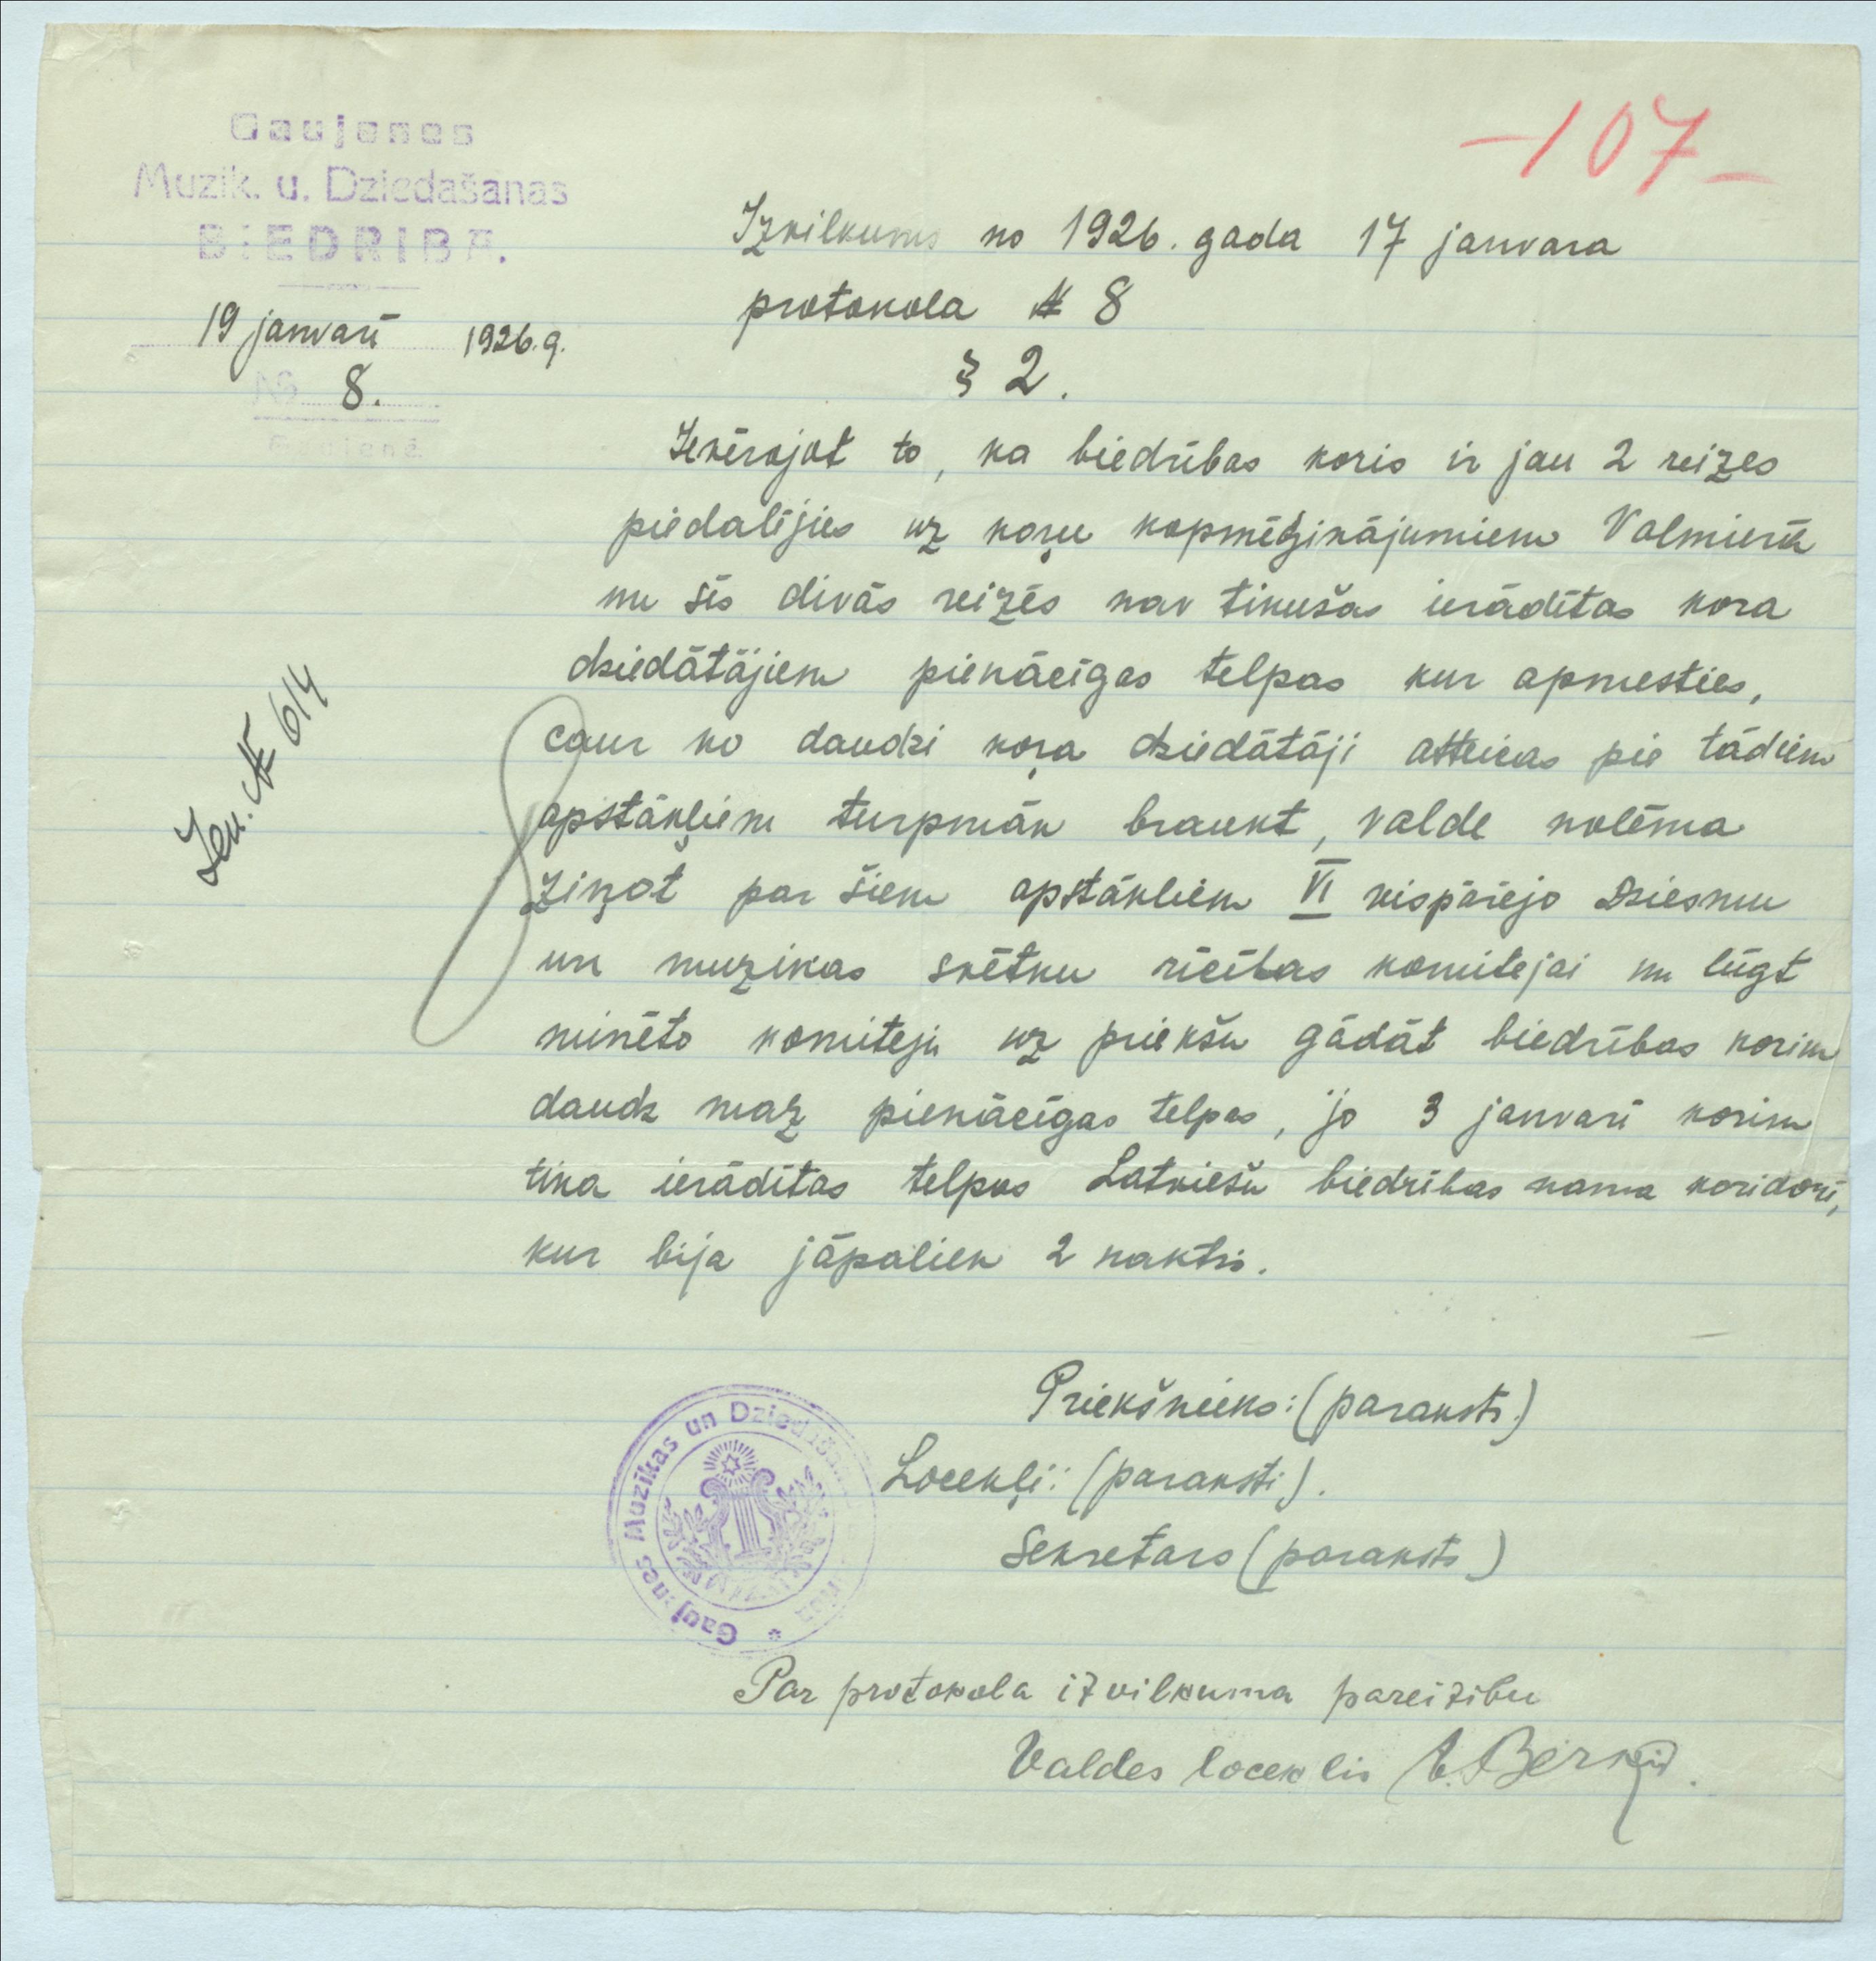 Gaujenes
Muzik. u. Dziedašanas
BIEDRIBA.
19 janvarī 1926.g.
№ 8.
Gaujienē
-107-
Izvilkums no 1926. gada 17 janvara
protokola № 8
§ 2.
Ievērojot to, ka biedrības koris ir jau 2 reizes
piedalījies uz koŗu kopmēģinājumiem Valmierā
un šīs divās reizēs nav tikušas ierādītas kora
dziedātājiem pienācīgas telpas kur apmesties,
caur ko daudzi koŗa dziedātāji atteicas pie tādiem
apstākļiem turpmāk braukt, valde nolēma
ziņot par šiem apstākliem VI vispārējo Dziesmu
un muzikas svētku rīcības komitejai un lūgt
minēto komiteju uz priekšu gādāt biedrības korim
daudz maz pienācīgas telpas, jo 3 janvarī korim
tika ierādītas telpas Latviešu biedrības nama koridorī,
kur bija jāpaliek 2 naktis.
Ien. № 614
Priekšnieks: (paraksts.)
Locekļi: (paraksti).
Sekretars (paraksts)
Gaujenes Muzikas un Dziedašanas
Par protokola izvilkuma pareizību
Valdes loceklis